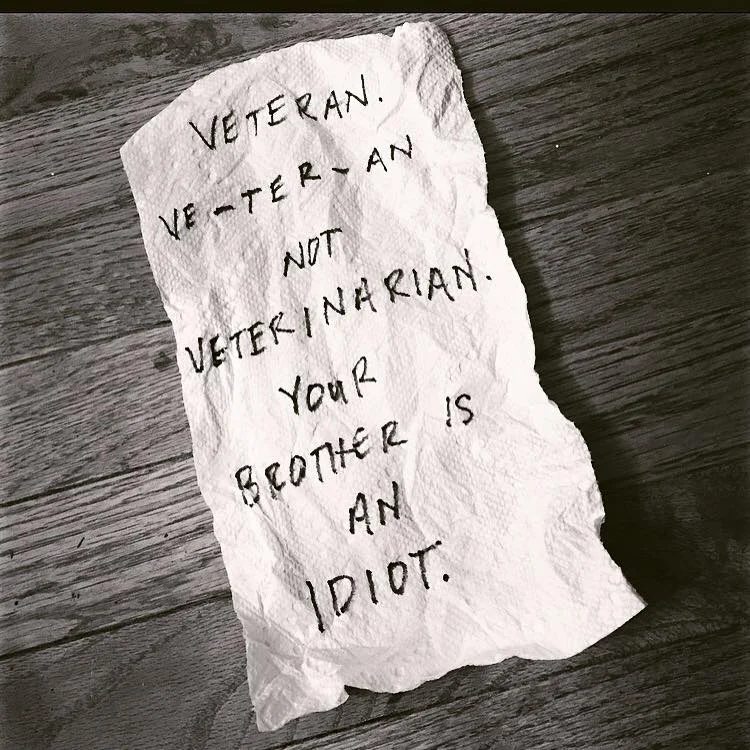 VETERAN.
VE-TER-AN
NOT
VETERINARIAN.
YOUR
BROTHER IS
AN
IDIOT.